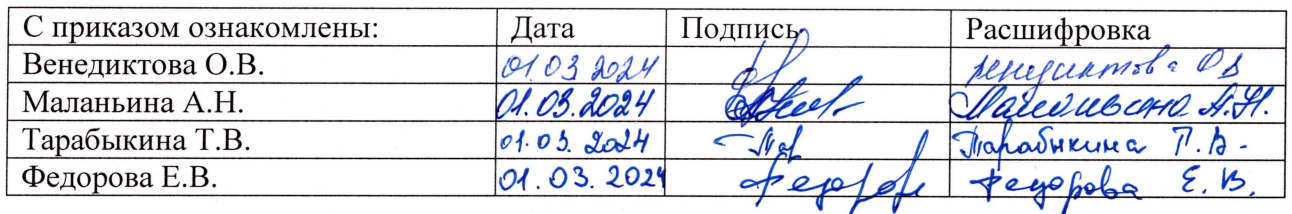 С приказом ознакомлены: Дата Подпись Расшифровка
Венедиктова О.В. 01.03 2024 Венедиктова О В
Маланьина А.Н. 01.03.2024 Маланьина А.Н.
Тарабыкина Т.В. 01.03. 2024 Тар Тарабыкина Т.В.
Федорова Е.В. 01.03. 2024 Федоров Федорова Е.В.